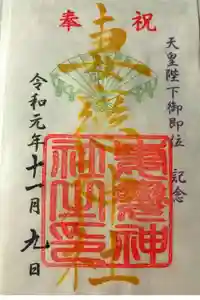 奉 祝
天皇陛下御即位 記念
神社
令和元年十一月九日
神
社之印